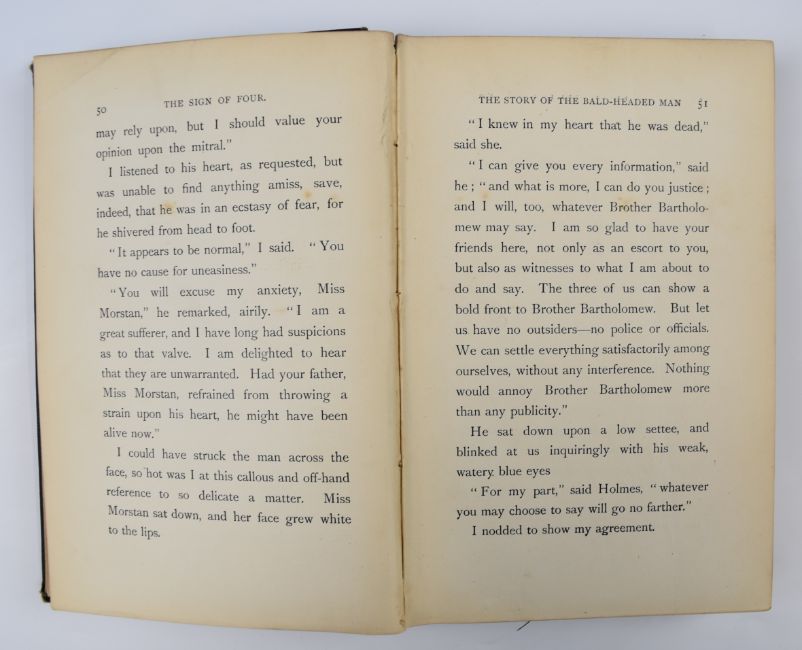 50
THE SIGN OF FOUR.
may rely upon, but I should value your
opinion upon the mitral.”
I listened to his heart, as requested, but
was unable to find anything amiss, save,
indeed, that he was in an ecstasy of fear, for
he shivered from head to foot.
“It appears to be normal,” I said. “You
have no cause for uneasiness.”
“You will excuse my anxiety, Miss
Morstan,” he remarked, airily. “I am a
great sufferer, and I have long had suspicions
as to that valve. I am delighted to hear
that they are unwarranted. Had your father,
Miss Morstan, refrained from throwing a
strain upon his heart, he might have been
alive now.”
I could have struck the man across the
face, so hot was I at this callous and off-hand
reference to so delicate a matter. Miss
Morstan sat down, and her face grew white
to the lips.
THE STORY OF THE BALD-HEADED MAN 51
“I knew in my heart that he was dead,”
said she.
“I can give you every information,” said
he; “and what is more, I can do you justice;
and I will, too, whatever Brother Bartholo-
mew may say. I am so glad to have your
friends here, not only as an escort to you,
but also as witnesses to what I am about to
do and say. The three of us can show a
bold front to Brother Bartholomew. But let
us have no outsiders—no police or officials.
We can settle everything satisfactorily among
ourselves, without any interference. Nothing
would annoy Brother Bartholomew more
than any publicity.”
He sat down upon a low settee, and
blinked at us inquiringly with his weak,
watery blue eyes
“For my part,” said Holmes, “whatever
you may choose to say will go no farther.”
I nodded to show my agreement.